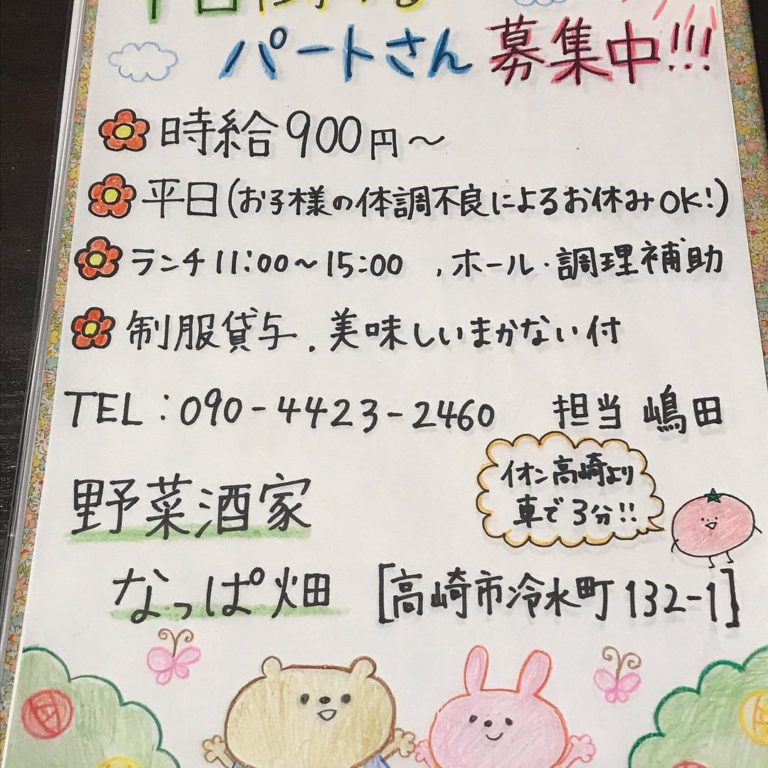 平日働ける
パートさん 募集中!!!
時給900円〜
平日(お子様の体調不良によるお休みOK!)
ランチ11:00〜15:00 , ホール・調理補助
制服貸与. 美味しいまかない付
TEL:090-4423-2460 担当 嶋田
イオン高崎より
車で3分!!
野菜酒家
なっぱ畑 [高崎市冷水町132-1]